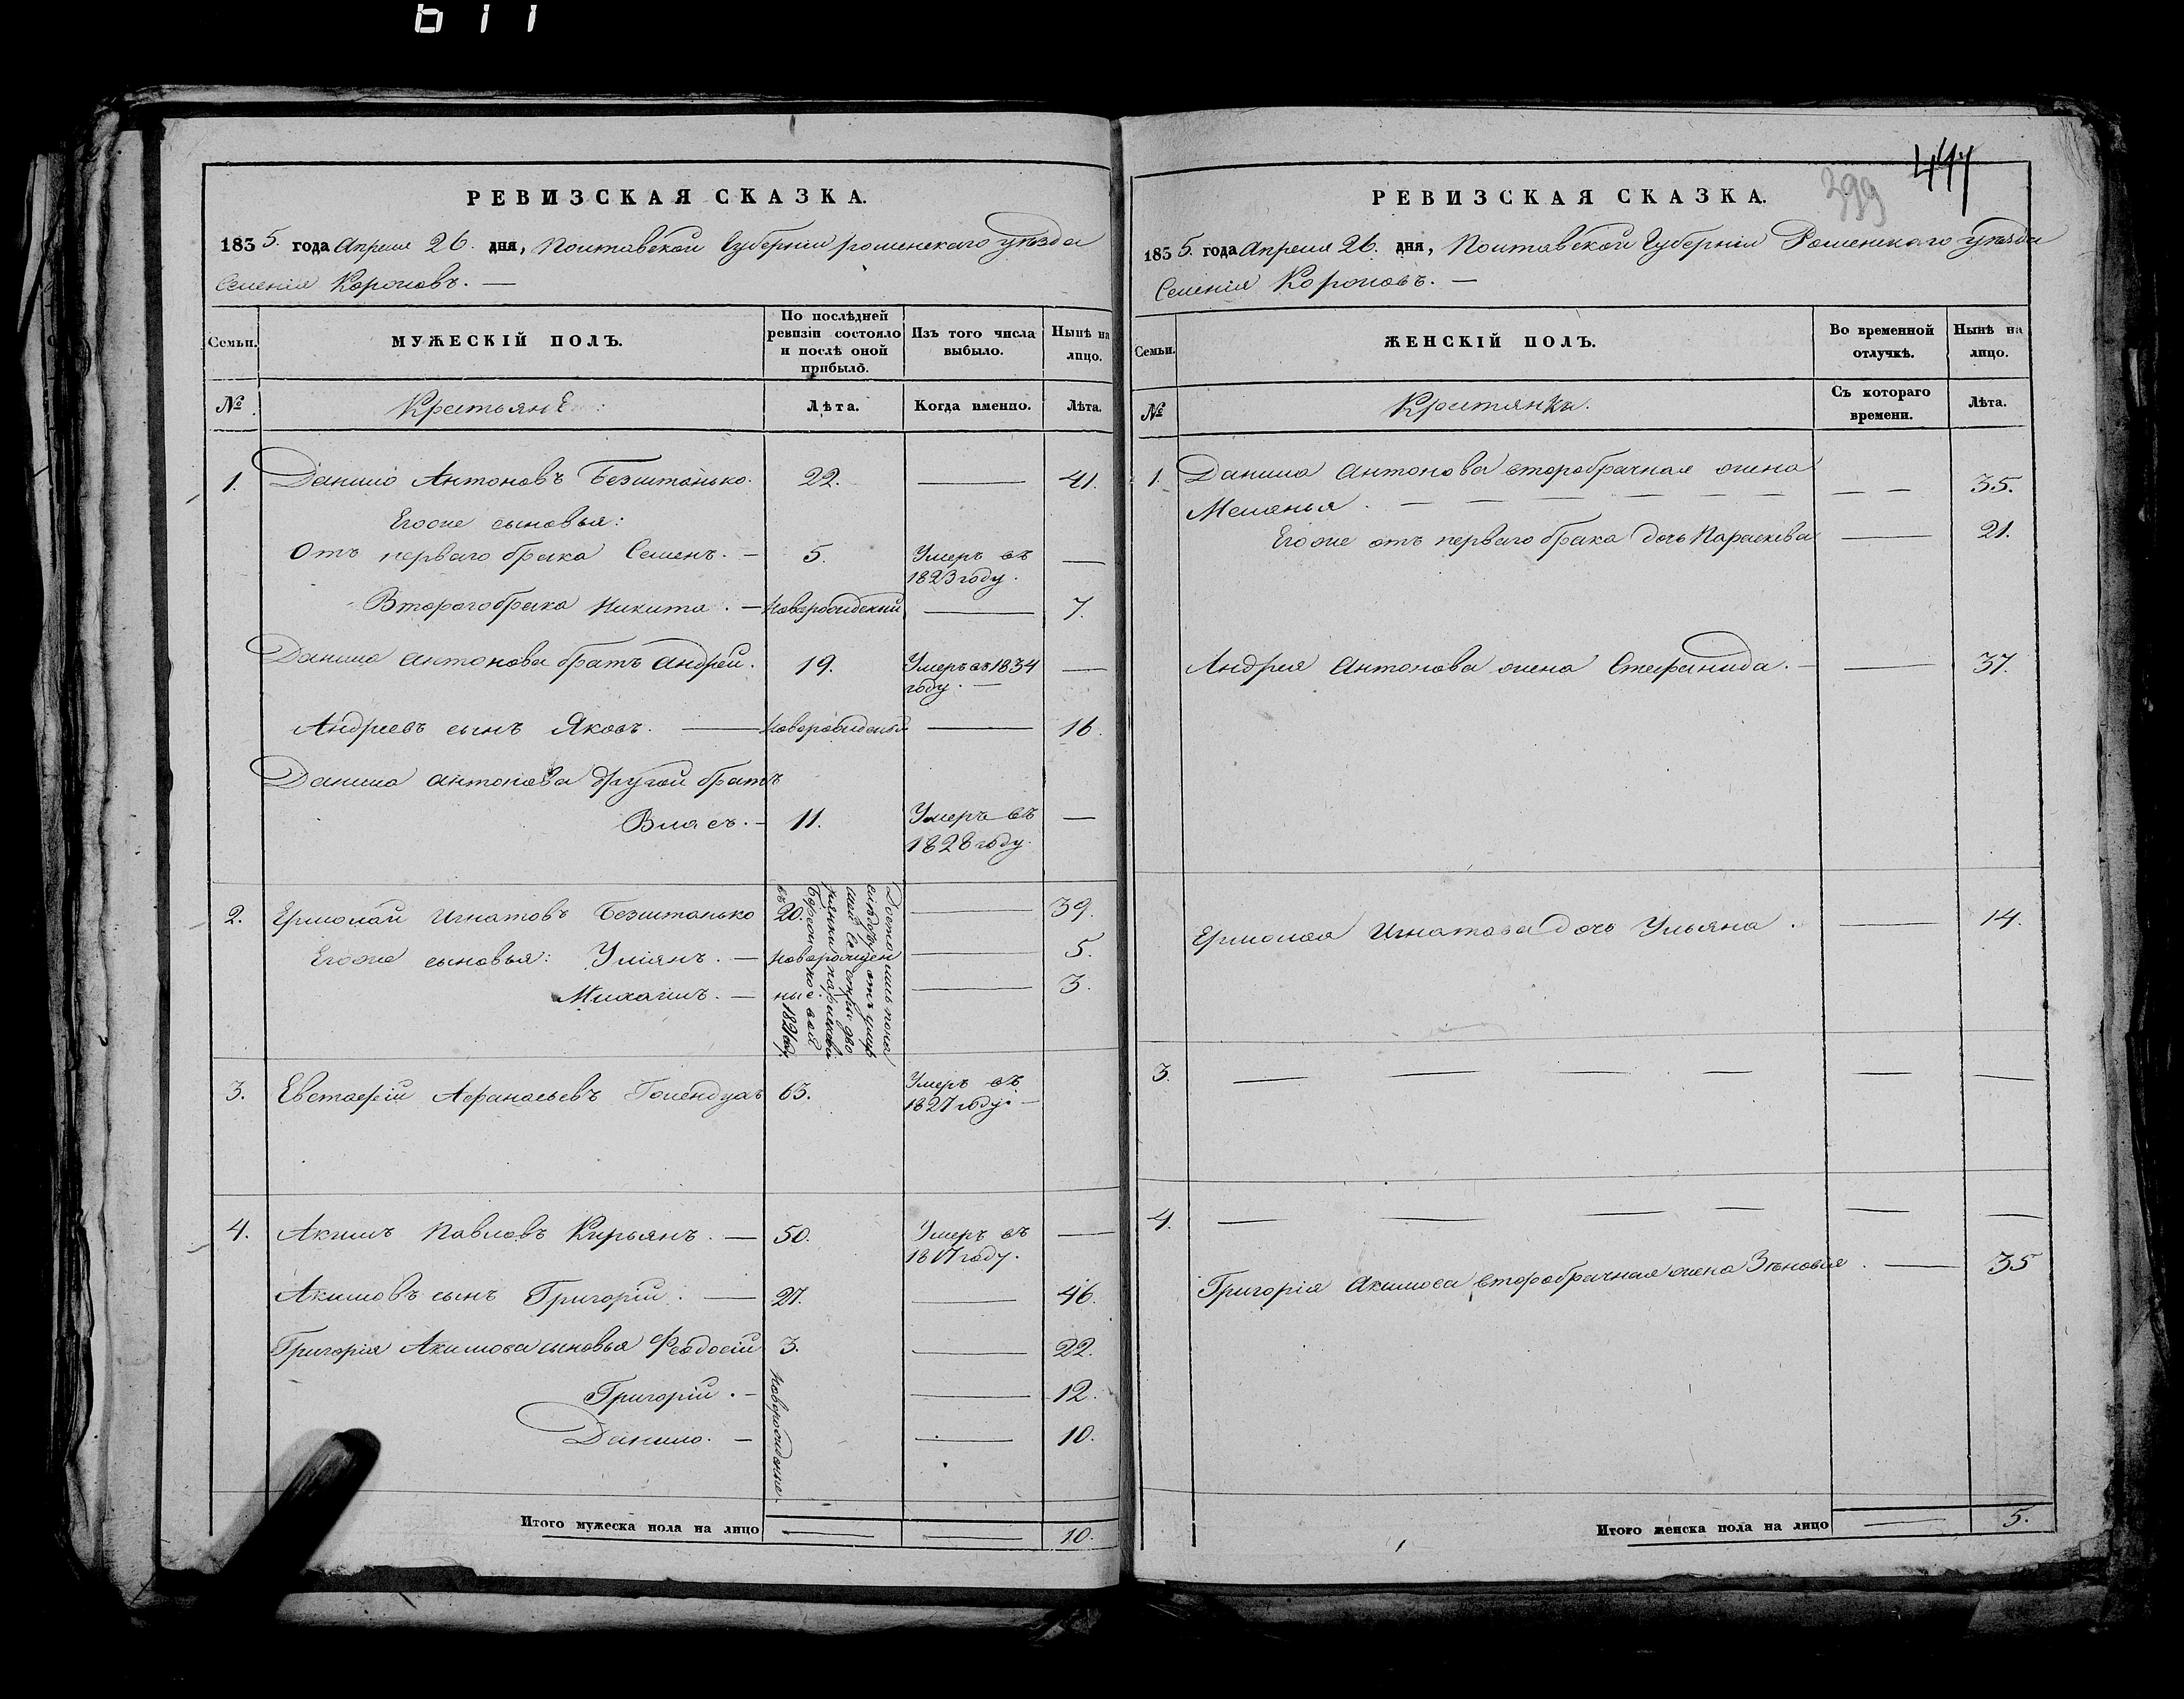 611
РЕВИЗСКАЯ СКАЗКА.
1835. года Апреля 26. дня, Полтавской Губерніи роменскаго уѣзда
Селенія Короповъ. —
Семьи.
МУЖЕСКІЙ ПОЛЪ.
По послѣдней ревизіи состояло и послѣ оной прибыло.
Изъ того числа выбыло.
Нынѣ на лицо.
№
Крестьяне:
Лѣта.
Когда именно.
Лѣта.
1. Данило Антоновъ Безштанько. 22. — 41.
Егоже сыновья:
Отъ перваго брака Семенъ. — 5. Умеръ въ 1823 году. —
Втораго брака Никита. — Новорожденный — 7.
Данила Антонова братъ Андрей. 19. Умеръ въ 1834 году. — —
Андреевъ сынъ Яковъ. — Новорожденый — 16.
Данила антонова другой братъ
Власъ. — 11. Умеръ въ 1828 году. —
2. Ермолай Игнатовъ Безштанько 20. — 39.
Егоже сыновья: Уліянъ. — Новорожден — 5.
Михаилъ. — ные. — 3.
въ 1821 году
3. Евстафій Афанасьевъ 63. Умеръ въ 1827 году. —
4. Акимъ Павловъ Кирьянъ. — 50. Умеръ въ 1817 году. —
Акимовъ сынъ Григорій. — 27. — 46.
Григорія Акимова сыновья Феодосій 3. — 22.
Григорій. — — 12.
Данило. — — 10.
Новорожденые.
Итого мужеска пола на лицо — — 10.
399
РЕВИЗСКАЯ СКАЗКА.
1835. года Апреля 26. дня, Полтавской Губерніи Роменскаго уѣзда
Селенія Короповъ. —
Семьи.
ЖЕНСКІЙ ПОЛЪ.
Во временной отлучкѣ.
Нынѣ на лицо.
№
Крестянки.
Съ котораго времени.
Лѣта.
1. Данила Антонова второбрачная жена
Меланья. — — 35.
Егоже отъ перваго брака дочь Параскева — 21.
Андрея Антонова жена Стефанида. — — 37.
Ермолая Игнатова дочь Ульяна. — 14.
3. — — — — — —
4. — — — — —
Григорія Акимова второбрачная жена Зѣновія. — 35
Итого женска пола на лицо — 5.